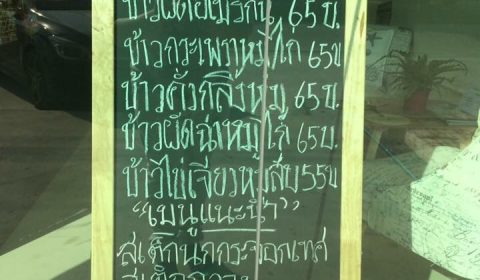 ข้าวผัดอเมริกัน 65 บ.
ข้าวกระเพราหมูไก่ 65บ
ข้าวคั่วกลิ้งหมู 65 บ.
ข้าวผัดฉ่าหมูไก่ 65บ.
ข้าวไข่เจียวหมูสับ 55บ
“เมนูแนะนำ”
สเต๊กนกกระจอกเทศ